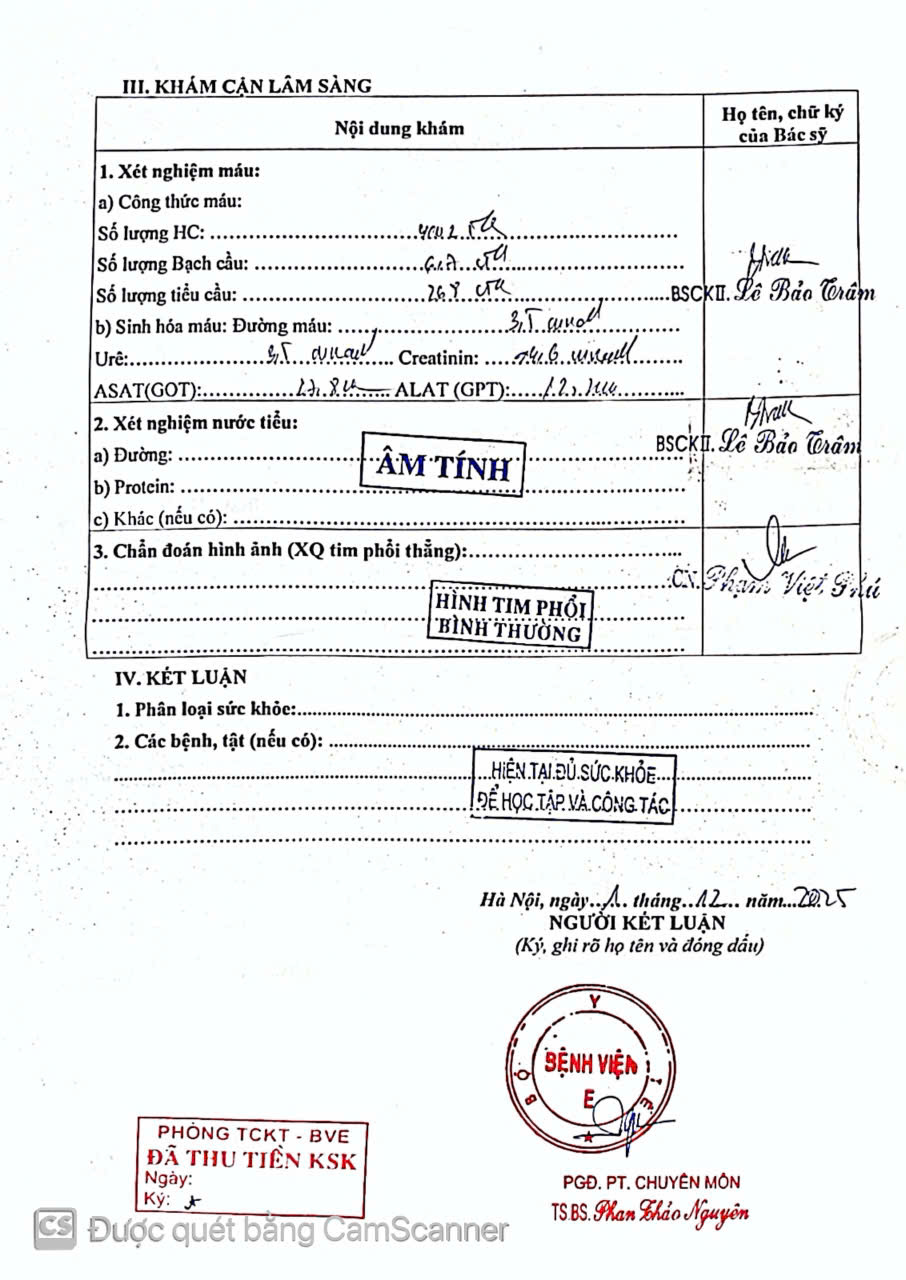 III. KHÁM CẬN LÂM SÀNG
Nội dung khám
Họ tên, chữ ký
của Bác sỹ
1. Xét nghiệm máu:
a) Công thức máu:
Số lượng HC:
Số lượng Bạch cầu:
Số lượng tiểu cầu: 268
BSCKII. Lê Bảo Trâm
b) Sinh hóa máu: Đường máu:
Urê: Creatinin:
ASAT(GOT): ALAT (GPT):
2. Xét nghiệm nước tiểu:
BSCKII. Lê Bảo Trâm
a) Đường:
ÂM TÍNH
b) Protein:
c) Khác (nếu có):
3. Chẩn đoán hình ảnh (XQ tim phổi thẳng):
CN. Phạm Việt Phú
HÌNH TIM PHỔI
BÌNH THƯỜNG
IV. KẾT LUẬN
1. Phân loại sức khỏe:
2. Các bệnh, tật (nếu có):
HIỆN TẠI ĐỦ SỨC KHỎE
ĐỂ HỌC TẬP VÀ CÔNG TÁC
Hà Nội, ngày 1 tháng 12 năm 2025
NGƯỜI KẾT LUẬN
(Ký, ghi rõ họ tên và đóng dấu)
BỘ Y TẾ
BỆNH VIỆN
E
PHÒNG TCKT - BVE
ĐÃ THU TIỀN KSK
Ngày:
Ký:
PGĐ. PT. CHUYÊN MÔN
TS.BS. Phan Thảo Nguyên
CS Được quét bằng CamScanner